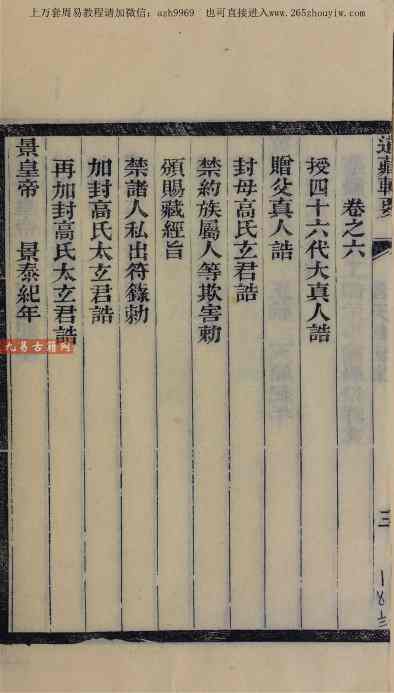 上万套周易教程请加微信：azh9969　也可直接进入www.265zhouyiw.com
道藏輯要
三
卷之六
授四十六代大真人誥
贈父真人誥
封母高氏玄君誥
禁約族屬人等欺害勅
頒賜藏經旨
禁諸人私出符籙勅
加封高氏太玄君誥
再加封高氏太玄君誥
景皇帝　景泰紀年
九易古籍网